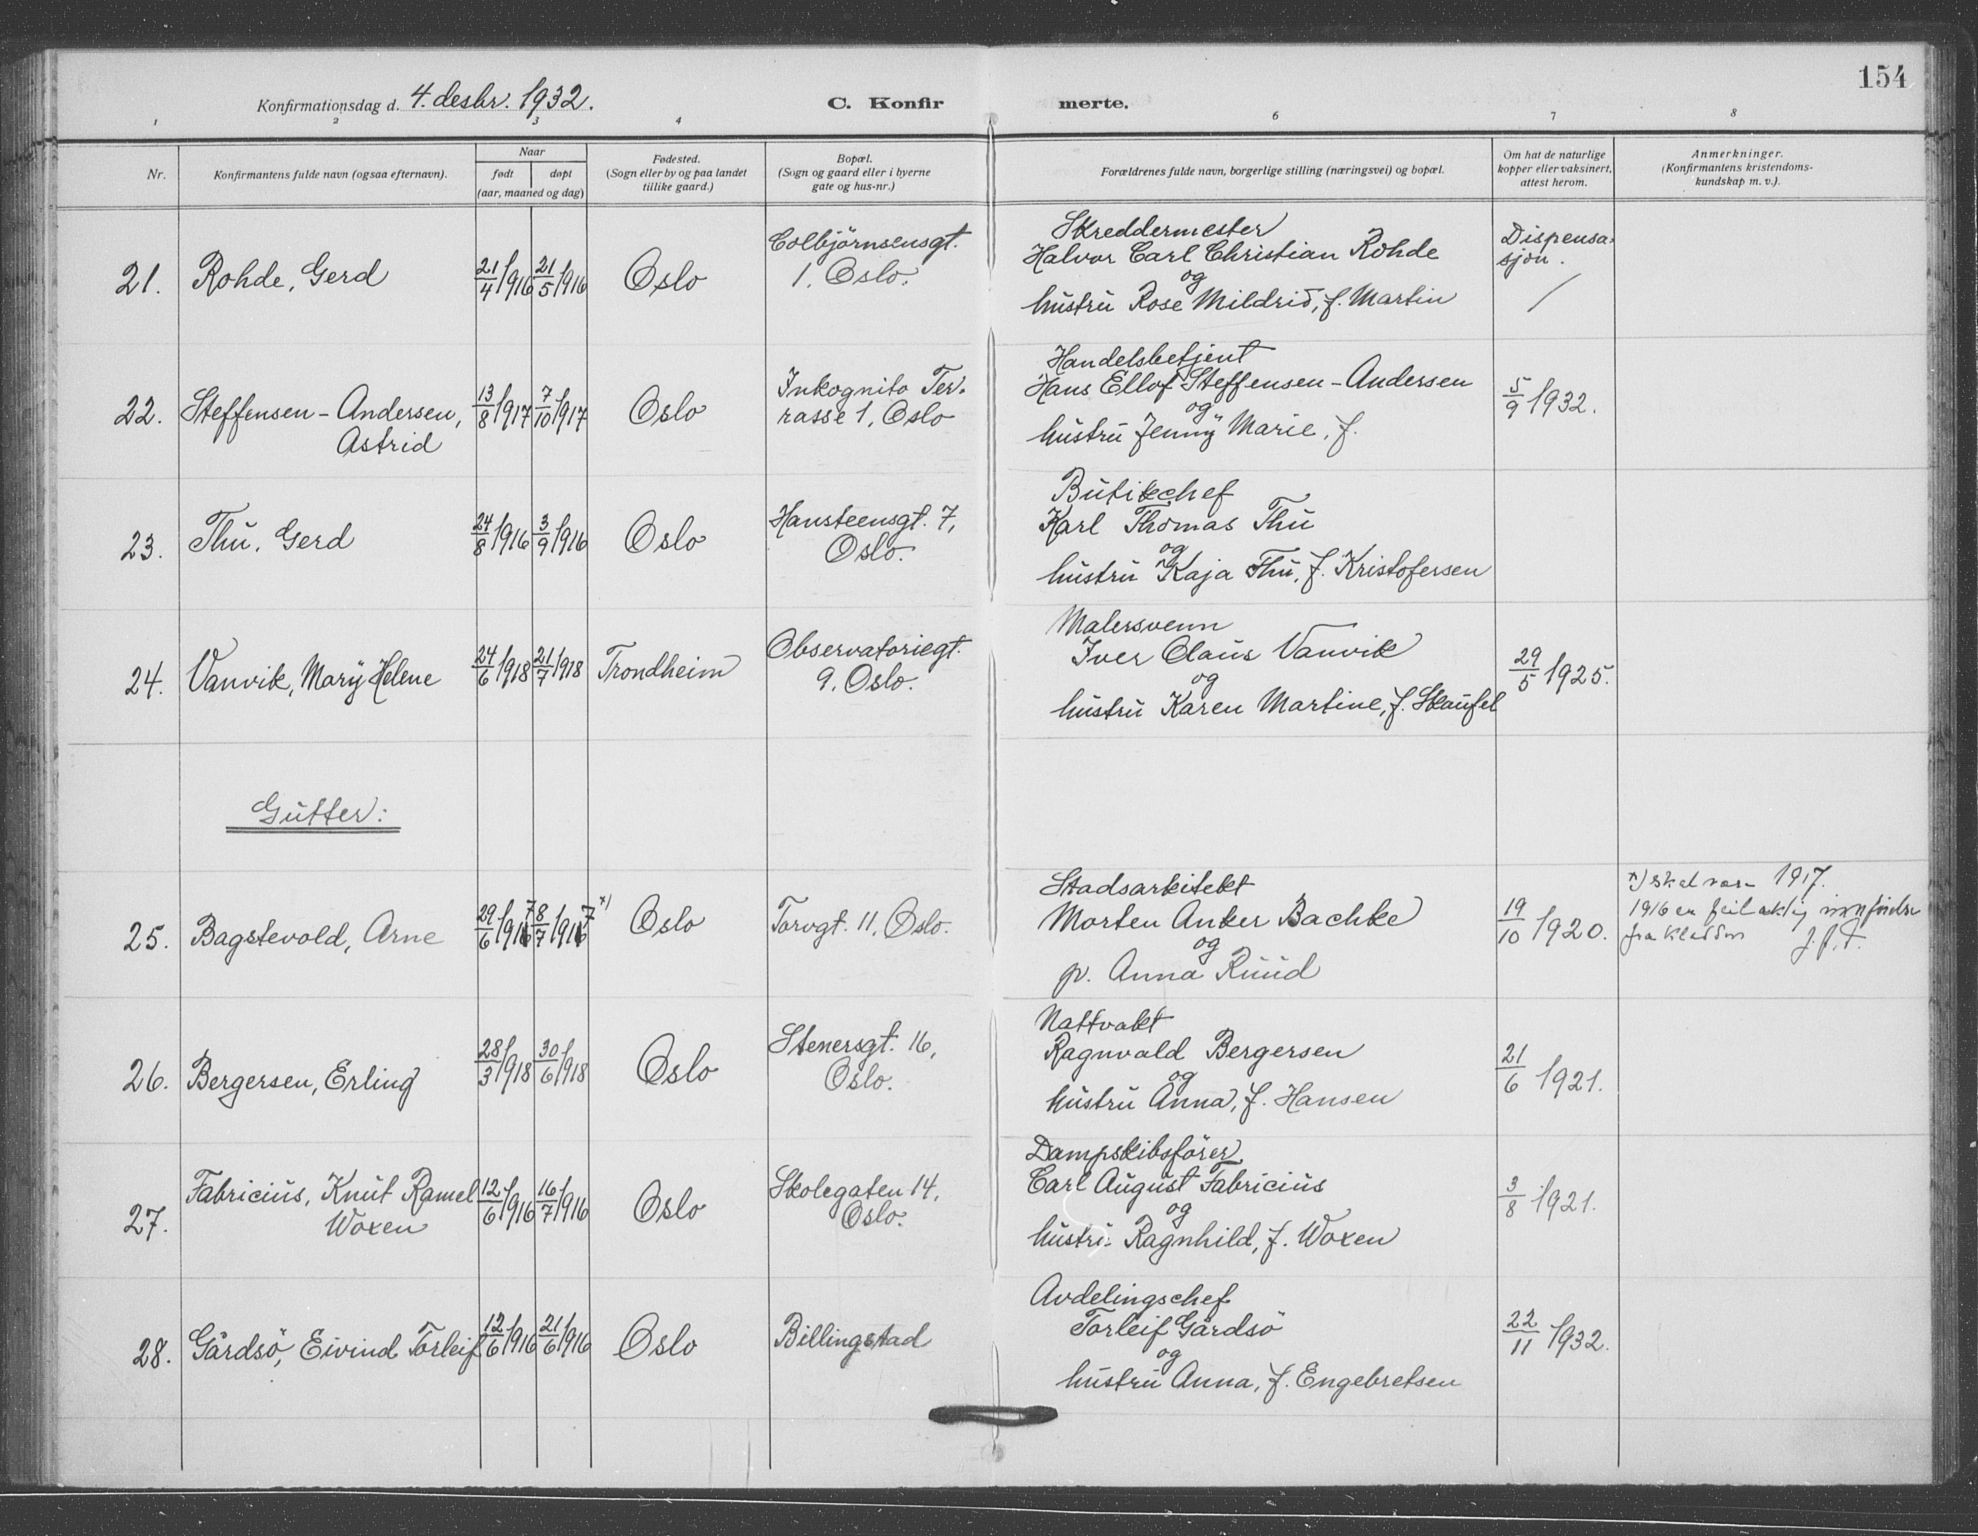 154
Konfirmationsdag d. 4. desbr. 1932.
C. Konfirmerte.
1 2 3 4 6 7 8
Nr.
Konfirmantens fulde navn (ogsaa efternavn).
Naar
født
døpt
(aar, maaned og dag)
Fødested.
(Sogn eller by og paa landet
tillike gaard.)
Bopæl.
(Sogn og gaard eller i byerne
gate og hus-nr.)
Forældrenes fulde navn, borgerlige stilling (næringsvei) og bopæl.
Om hat de naturlige
kopper eller vaksinert,
attest herom.
Anmerkninger.
(Konfirmantens kristendoms-
kundskap m. v.).
21. Rohde, Gerd 21/4 1916 21/5 1916 Oslo
Colbjörnsensgt.
1, Oslo.
Skreddermester
Halvor Carl Christian Rohde
og
hustru Rose Mildrid, f. Martin
Dispensa-
sjon.
/
22. Steffensen-Andersen,
Astrid
13/8 1917 7/10 1917 Oslo
Inkognito Ter-
rasse 1, Oslo
Handelsbetjent
Hans Ellof Steffensen-Andersen
og
hustru Jenny Marie, f.
5/9 1932.
23. Thu, Gerd 24/8 1916 3/9 1916 Oslo
Hansteensgt. 7,
Oslo.
Butikchef
Karl Thomas Thu
og
hustru Kaja Thu, f. Kristofersen
24. Vanvik, Mary Helene 24/6 1918 21/7 1918 Trondheim
Observatoriegt.
9, Oslo.
Malersvenn
Iver Claus Vanvik
og
hustru Karen Martine, f. Skaufel
29/5 1925.
Gutter:
25. Bagstevold, Arne 29/6 1917 8/7 1917 x) Oslo
Torvgt. 11, Oslo.
Stadsarkitekt
Morten Anker Bachke
og
pv. Anna Ruud
19/10 1920.
x) skal være 1917.
1916 er feilaktig innført
fra kladden J. f. T.
26. Bergersen, Erling 28/3 1918 30/6 1918 Oslo
Stenersgt. 16,
Oslo.
Nattvakt
Ragnvald Bergersen
og
hustru Anna, f. Hansen
21/6 1921.
27. Fabricius, Knut Ramel
Woxen
12/6 1916 16/7 1916 Oslo
Skolegaten 14,
Oslo.
Dampskibsförer
Carl August Fabricius
og
hustru Ragnhild, f. Woxen
3/8 1921.
28. Gårdsö, Eivind Torleif 12/6 1916 21/6 1916 Oslo
Billingstad
Avdelingschef
Torleif Gårdsö
og
hustru Anna, f. Engebretsen
22/11 1932.